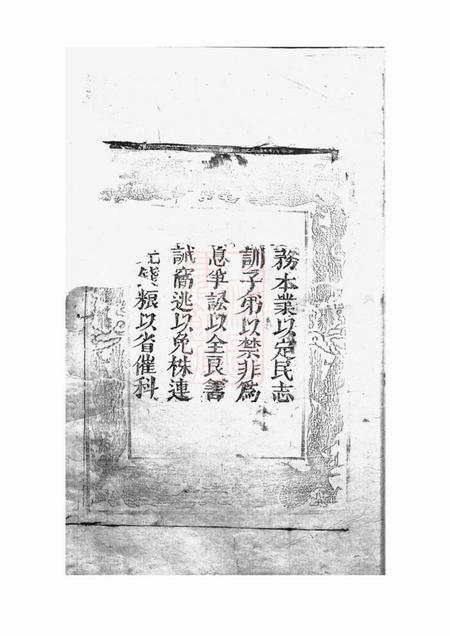 務本業以定民志
訓子弟以禁非爲
息爭訟以全良善
誡窩逃以免株連
完錢粮以省催科